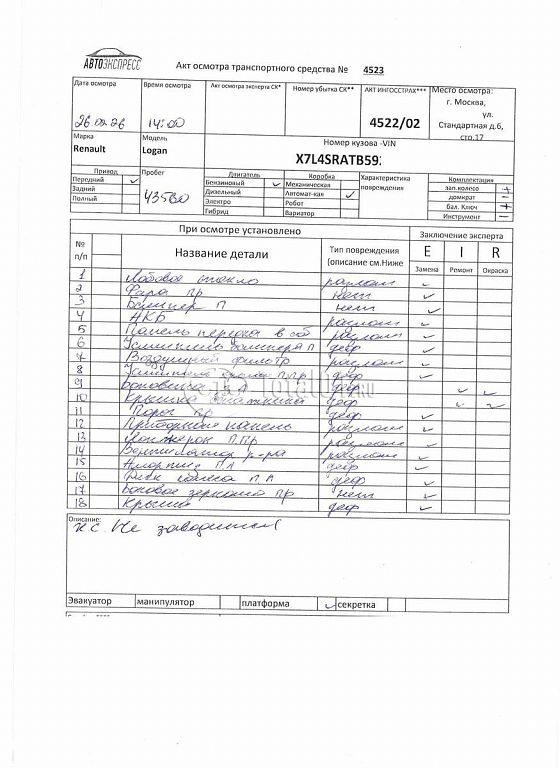 АВТОЭКСПРЕСС
Акт осмотра транспортного средства № 4523
Дата осмотра
Время осмотра
Акт осмотра эксперта СК*
Номер убытка СК**
АКТ ИНГОССТРАХ***
Место осмотра:
г. Москва,
ул.
Стандартная д.6,
стр.17
26.02.26
14:00
4522/02
Марка
Модель
Номер кузова -VIN
Renault
Logan
X7L4SRATB592
Привод
Пробег
Двигатель
Коробка
Характеристика
повреждения
Комплектация
Передний
Бензиновый
Механическая
зап.колесо +
Задний
Дизельный
Автомат-кая
домкрат -
Полный
43560
Электро
Робот
бал. Ключ +
Гибрид
Вариатор
Инструмент -
При осмотре установлено
Заключение эксперта
№
п/п
Название детали
Тип повреждения
(описание см.Ниже
E I R
Замена Ремонт Окраска
1 Лобовое стекло разлом
2 Фара пр нет
3 Бампер П нет
4 АКБ разлом
5 Панель передка в сб разлом
6 Усилитель бампера п деф
7 Воздушный фильтр разлом
8 Усилитель ппр деф
9 Боковина деф
10 Крышка багажника деф
11 Порог пр деф
12 Приборная панель разлом
13 Лонжерон П.Пр разлом
14 Вентилятор р-ра разлом
15 Амортиз ПЛ деф
16 Диск колеса П.Л деф
17 Боковое зеркало пр нет
18 Крыша деф
Описание:
Не заводится
Эвакуатор
манипулятор
платформа
секретка